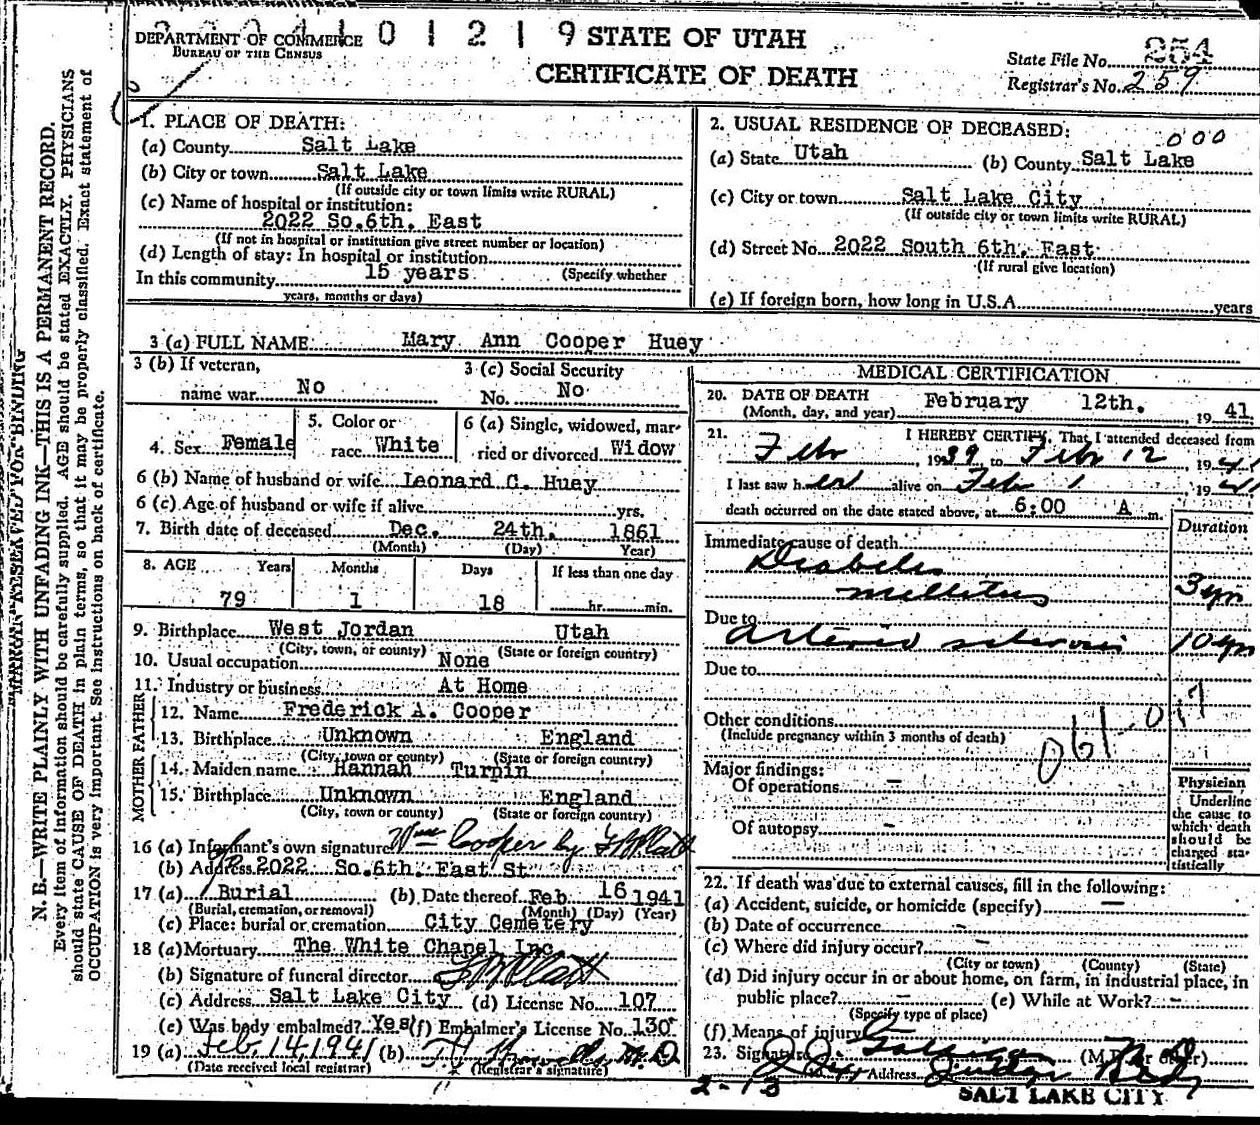 DEPARTMENT OF COMMERCE 0 1 2 1 9 STATE OF UTAH
BUREAU OF THE CENSUS
CERTIFICATE OF DEATH
State File No. 254
Registrar's No. 259
MARGIN RESERVED FOR BINDING
N. B.—WRITE PLAINLY WITH UNFADING INK—THIS IS A PERMANENT RECORD.
Every item of information should be carefully supplied. AGE should be stated EXACTLY. PHYSICIANS
should state CAUSE OF DEATH in plain terms, so that it may be properly classified. Exact statement of
OCCUPATION is very important. See instructions on back of certificate.
1. PLACE OF DEATH:
(a) County Salt Lake
(b) City or town Salt Lake
(If outside city or town limits write RURAL)
(c) Name of hospital or institution:
2022 So.6th. East
(If not in hospital or institution give street number or location)
(d) Length of stay: In hospital or institution
In this community 15 years (Specify whether
years, months or days)
2. USUAL RESIDENCE OF DECEASED: 000
(a) State Utah (b) County Salt Lake
(c) City or town Salt Lake City
(If outside city or town limits write RURAL)
(d) Street No. 2022 South 6th. East
(If rural give location)
(e) If foreign born, how long in U.S.A. years
3 (a) FULL NAME Mary Ann Cooper Huey
3 (b) If veteran, name war No
3 (c) Social Security No. No
4. Sex Female
5. Color or race White
6 (a) Single, widowed, married or divorced Widow
6 (b) Name of husband or wife Leonard C. Huey
6 (c) Age of husband or wife if alive yrs.
7. Birth date of deceased Dec. 24th. 1861
(Month) (Day) Year)
8. AGE Years Months Days If less than one day
79 1 18 hr. min.
9. Birthplace West Jordan Utah
(City, town, or county) (State or foreign country)
10. Usual occupation None
11. Industry or business At Home
FATHER
12. Name Frederick A. Cooper
13. Birthplace Unknown England
(City, town or county) (State or foreign country)
MOTHER
14. Maiden name Hannah Turpin
15. Birthplace Unknown England
(City, town or county) (State or foreign country)
16 (a) Informant's own signature Wm Cooper by
(b) Address 2022 So.6th. East St.
17 (a) Burial (b) Date thereof Feb 16 1941
(Burial, cremation, or removal) (Month) (Day) (Year)
(c) Place: burial or cremation City Cemetery
18 (a) Mortuary The White Chapel Inc.
(b) Signature of funeral director
(c) Address Salt Lake City (d) License No. 107
(e) Was body embalmed? Yes (f) Embalmer's License No. 130
19 (a) Feb. 14, 1941 (b) M.D
(Date received local registrar) (Registrar's signature)
MEDICAL CERTIFICATION
20. DATE OF DEATH
(Month, day, and year) February 12th. 19 41
21. I HEREBY CERTIFY, That I attended deceased from
Feb, 19 39 to Feb 12, 19 41
I last saw h er alive on Feb 1, 19 41
death occurred on the date stated above, at 6:00 A m.
Duration
Immediate cause of death
Diabetes
mellitus 3 yrs
Due to
arterio sclerosis 10 yrs
Due to
Other conditions
(Include pregnancy within 3 months of death)
061
Major findings:
Of operations —
Of autopsy -
Physician
Underline
the cause to
which death
should be
charged sta-
tistically
22. If death was due to external causes, fill in the following:
(a) Accident, suicide, or homicide (specify) —
(b) Date of occurrence -
(c) Where did injury occur? -
(City or town) (County) (State)
(d) Did injury occur in or about home, on farm, in industrial place, in
public place? - (e) While at Work? -
(Specify type of place)
(f) Means of injury
23. Signature (M.D. or other)
Address Judge Bldg
2-13
SALT LAKE CITY